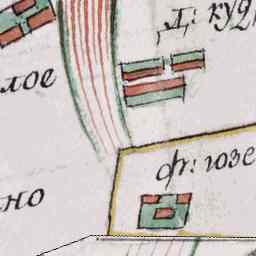 д: куд
лое
ф: юзе
но